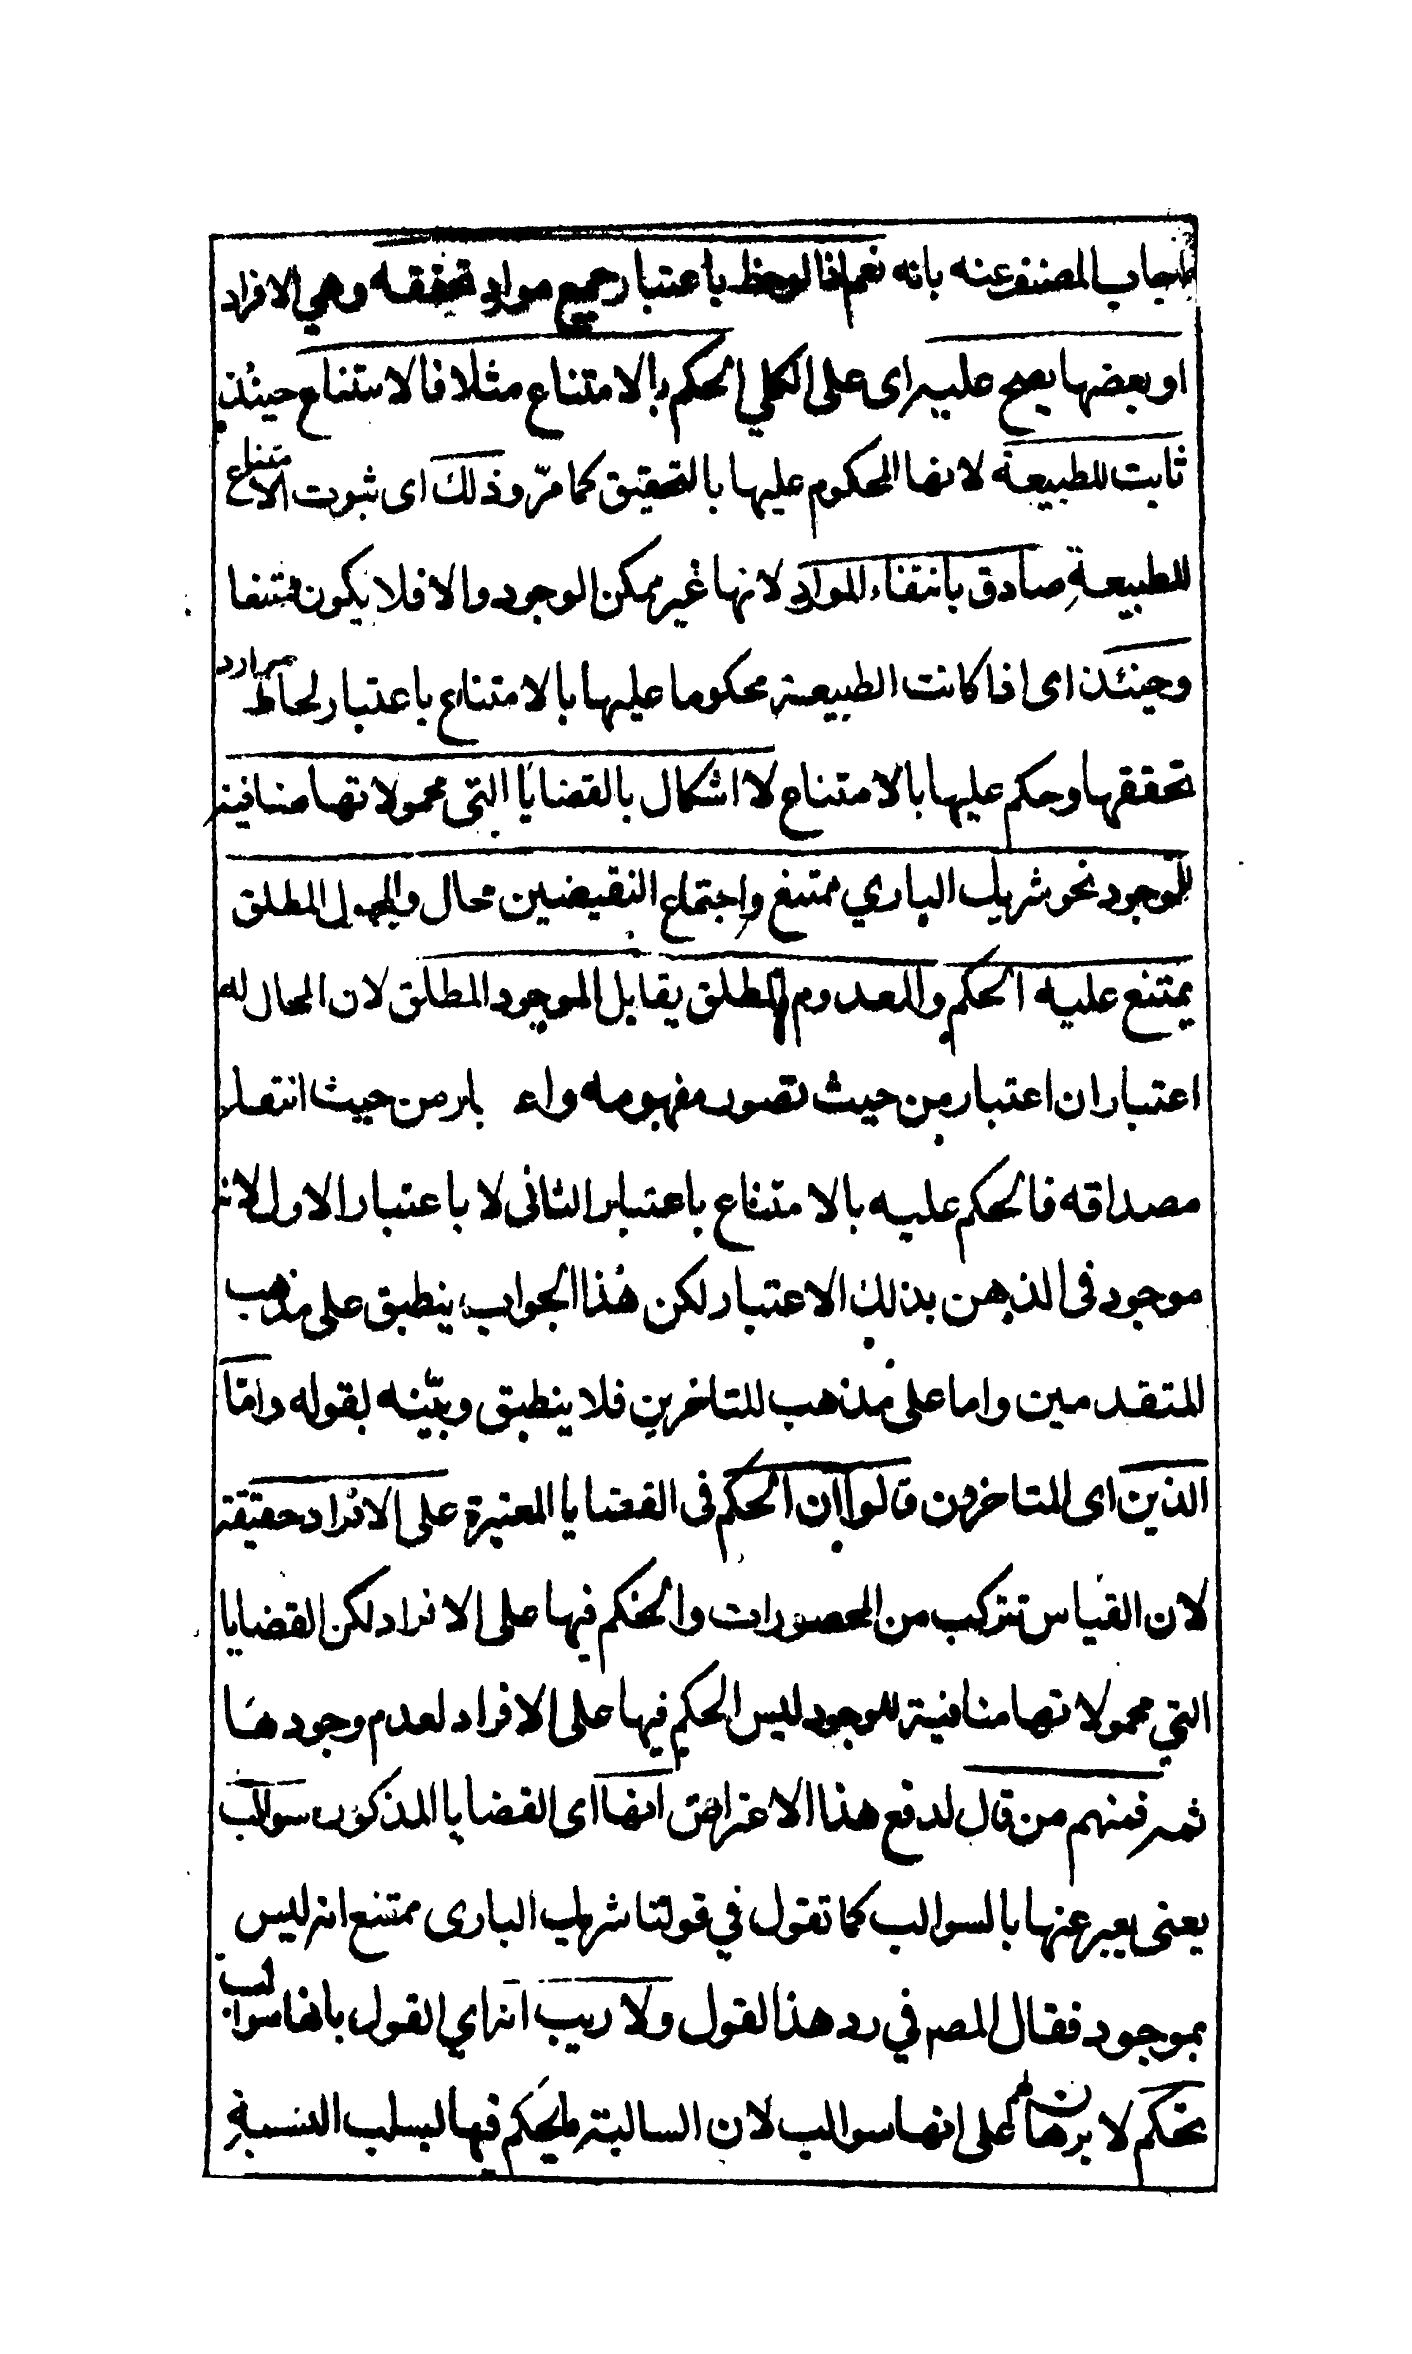 اجاب المصنف عنه بانه نعم اذا لوحظ باعتبار جميع موارد تحققه وهي الافراد
او بعضها يصح عليه اى على الكلي الحكم بالامتناع مثلا فالامتناع حينئذ
ثابت للطبيعة لانها المحكوم عليها بالتحقيق كما مرّ وذلك اى ثبوت الامتناع
للطبيعة صادق بانتفاء الموارد لانها غير ممكن الوجود والا فلا يكون ممتنعا
وحينئذ اى اذا كانت الطبيعة محكوما عليها بالامتناع باعتبار لحاظ موارد
تحققها وحكم عليها بالامتناع لا اشكال بالقضايا التي محمولاتها منافية
للوجود نحو شريك الباري ممتنع واجتماع النقيضين محال والمجهول المطلق
يمتنع عليه الحكم والمعدوم المطلق يقابل الموجود المطلق لان المحال له
اعتباران اعتبار من حيث تصور مفهومه من حيث انتفاء
مصداقه فالحكم عليه بالامتناع باعتبار الثانى لا باعتبار الاول لانه
موجود فى الذهن بذلك الاعتبار لكن هذا الجواب ينطبق على مذهب
المتقدمين واما على مذهب المتاخرين فلا ينطبق وبيّنه بقوله وامّا
الذين اى المتاخرون قالوا ان الحكم فى القضايا المعتبرة على الافراد حقيقة
لان القياس تتركب من المحصورات والحكم فيها على الافراد لكن القضايا
التي محمولاتها منافية للوجود ليس الحكم فيها على الافراد لعدم وجودها
ثمه فمنهم من قال لدفع هذا الاعتراض انها اى القضايا المذكورة سوالب
يعنى يعبر عنها بالسوالب كما تقول في قولنا شريك البارى ممتنع انه ليس
بموجود فقال المصـ في رد هذا القول ولا ريب انه اي القول بانها سوالب
تحكم لا برهان لهم على انها سوالب لان السالبة ما يحكم فيها لبسلب النسبة